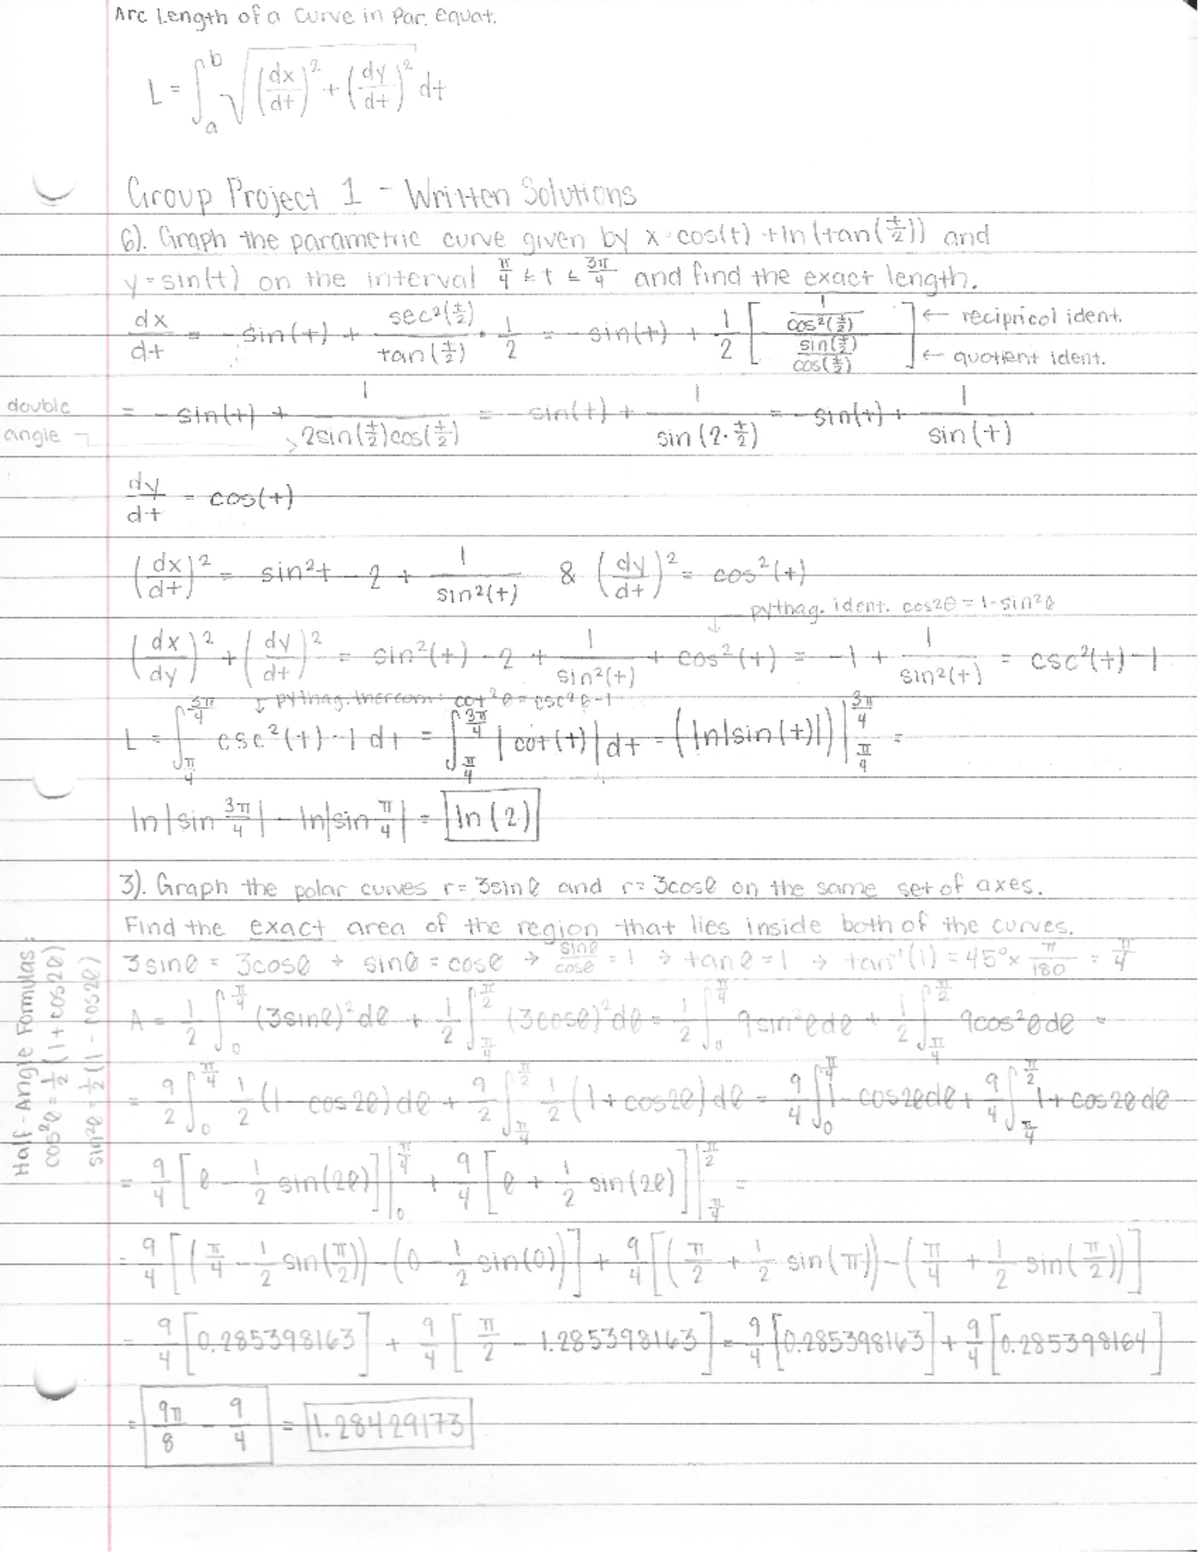 Arc Length of a Curve in Par. Equat.
L = ∫_a^b √((dx/dt)² + (dy/dt)²) dt
Group Project 1 - Written Solutions
6). Graph the parametric curve given by x = cos(t) + ln(tan(t/2)) and
y = sin(t) on the interval π/4 ≤ t ≤ 3π/4 and find the exact length.
dx/dt = -sin(t) + sec²(t/2)/tan(t/2) · 1/2 = -sin(t) + 1/2 [ (1/cos²(t/2)) / (sin(t/2)/cos(t/2)) ] ← recipricol ident. ← quotient ident.
double angle
= -sin(t) + 1/(2sin(t/2)cos(t/2)) = -sin(t) + 1/sin(2·t/2) = -sin(t) + 1/sin(t)
dy/dt = cos(t)
(dx/dt)² = sin²t - 2 + 1/sin²(t) & (dy/dt)² = cos²(t)
pythag. ident. cos2θ = 1-sin²θ
(dx/dy)² + (dy/dt)² = sin²(t) - 2 + 1/sin²(t) + cos²(t) = -1 + 1/sin²(t) = csc²(t) - 1
↓ pythag. theorem: cot²θ = csc²θ - 1
L = ∫_π/4^3π/4 csc²(t) - 1 dt = ∫_π/4^3π/4 |cot(t)| dt = (ln|sin(t)|) |_π/4^3π/4 =
ln|sin 3π/4| - ln|sin π/4| = ln(2)
3). Graph the polar curves r = 3sinθ and r = 3cosθ on the same set of axes.
Find the exact area of the region that lies inside both of the curves.
3sinθ = 3cosθ → sinθ = cosθ → sinθ/cosθ = 1 → tanθ = 1 → tan⁻¹(1) = 45° × π/180 = π/4
Half-Angle Formulas:
cos²θ = 1/2 (1 + cos2θ)
sin²θ = 1/2 (1 - cos2θ)
A = 1/2 ∫_0^π/4 (3sinθ)² dθ + 1/2 ∫_π/4^π/2 (3cosθ)² dθ = 1/2 ∫_0^π/4 9sin²θdθ + 1/2 ∫_π/4^π/2 9cos²θdθ =
= 9/2 ∫_0^π/4 1/2 (1 - cos2θ) dθ + 9/2 ∫_π/4^π/2 1/2 (1 + cos2θ) dθ = 9/4 ∫_0^π/4 1 - cos2θdθ + 9/4 ∫_π/4^π/2 1 + cos2θ dθ
= 9/4 [θ - 1/2 sin(2θ)] |_0^π/4 + 9/4 [θ + 1/2 sin(2θ)] |_π/4^π/2 =
= 9/4 [(π/4 - 1/2 sin(π/2)) - (0 - 1/2 sin(0))] + 9/4 [(π/2 + 1/2 sin(π)) - (π/4 + 1/2 sin(π/2))]
= 9/4 [0.285398163] + 9/4 [π/2 - 1.285398163] = 9/4 [0.285398163] + 9/4 [0.285398164]
= 9π/8 - 9/4 = 1.28429173